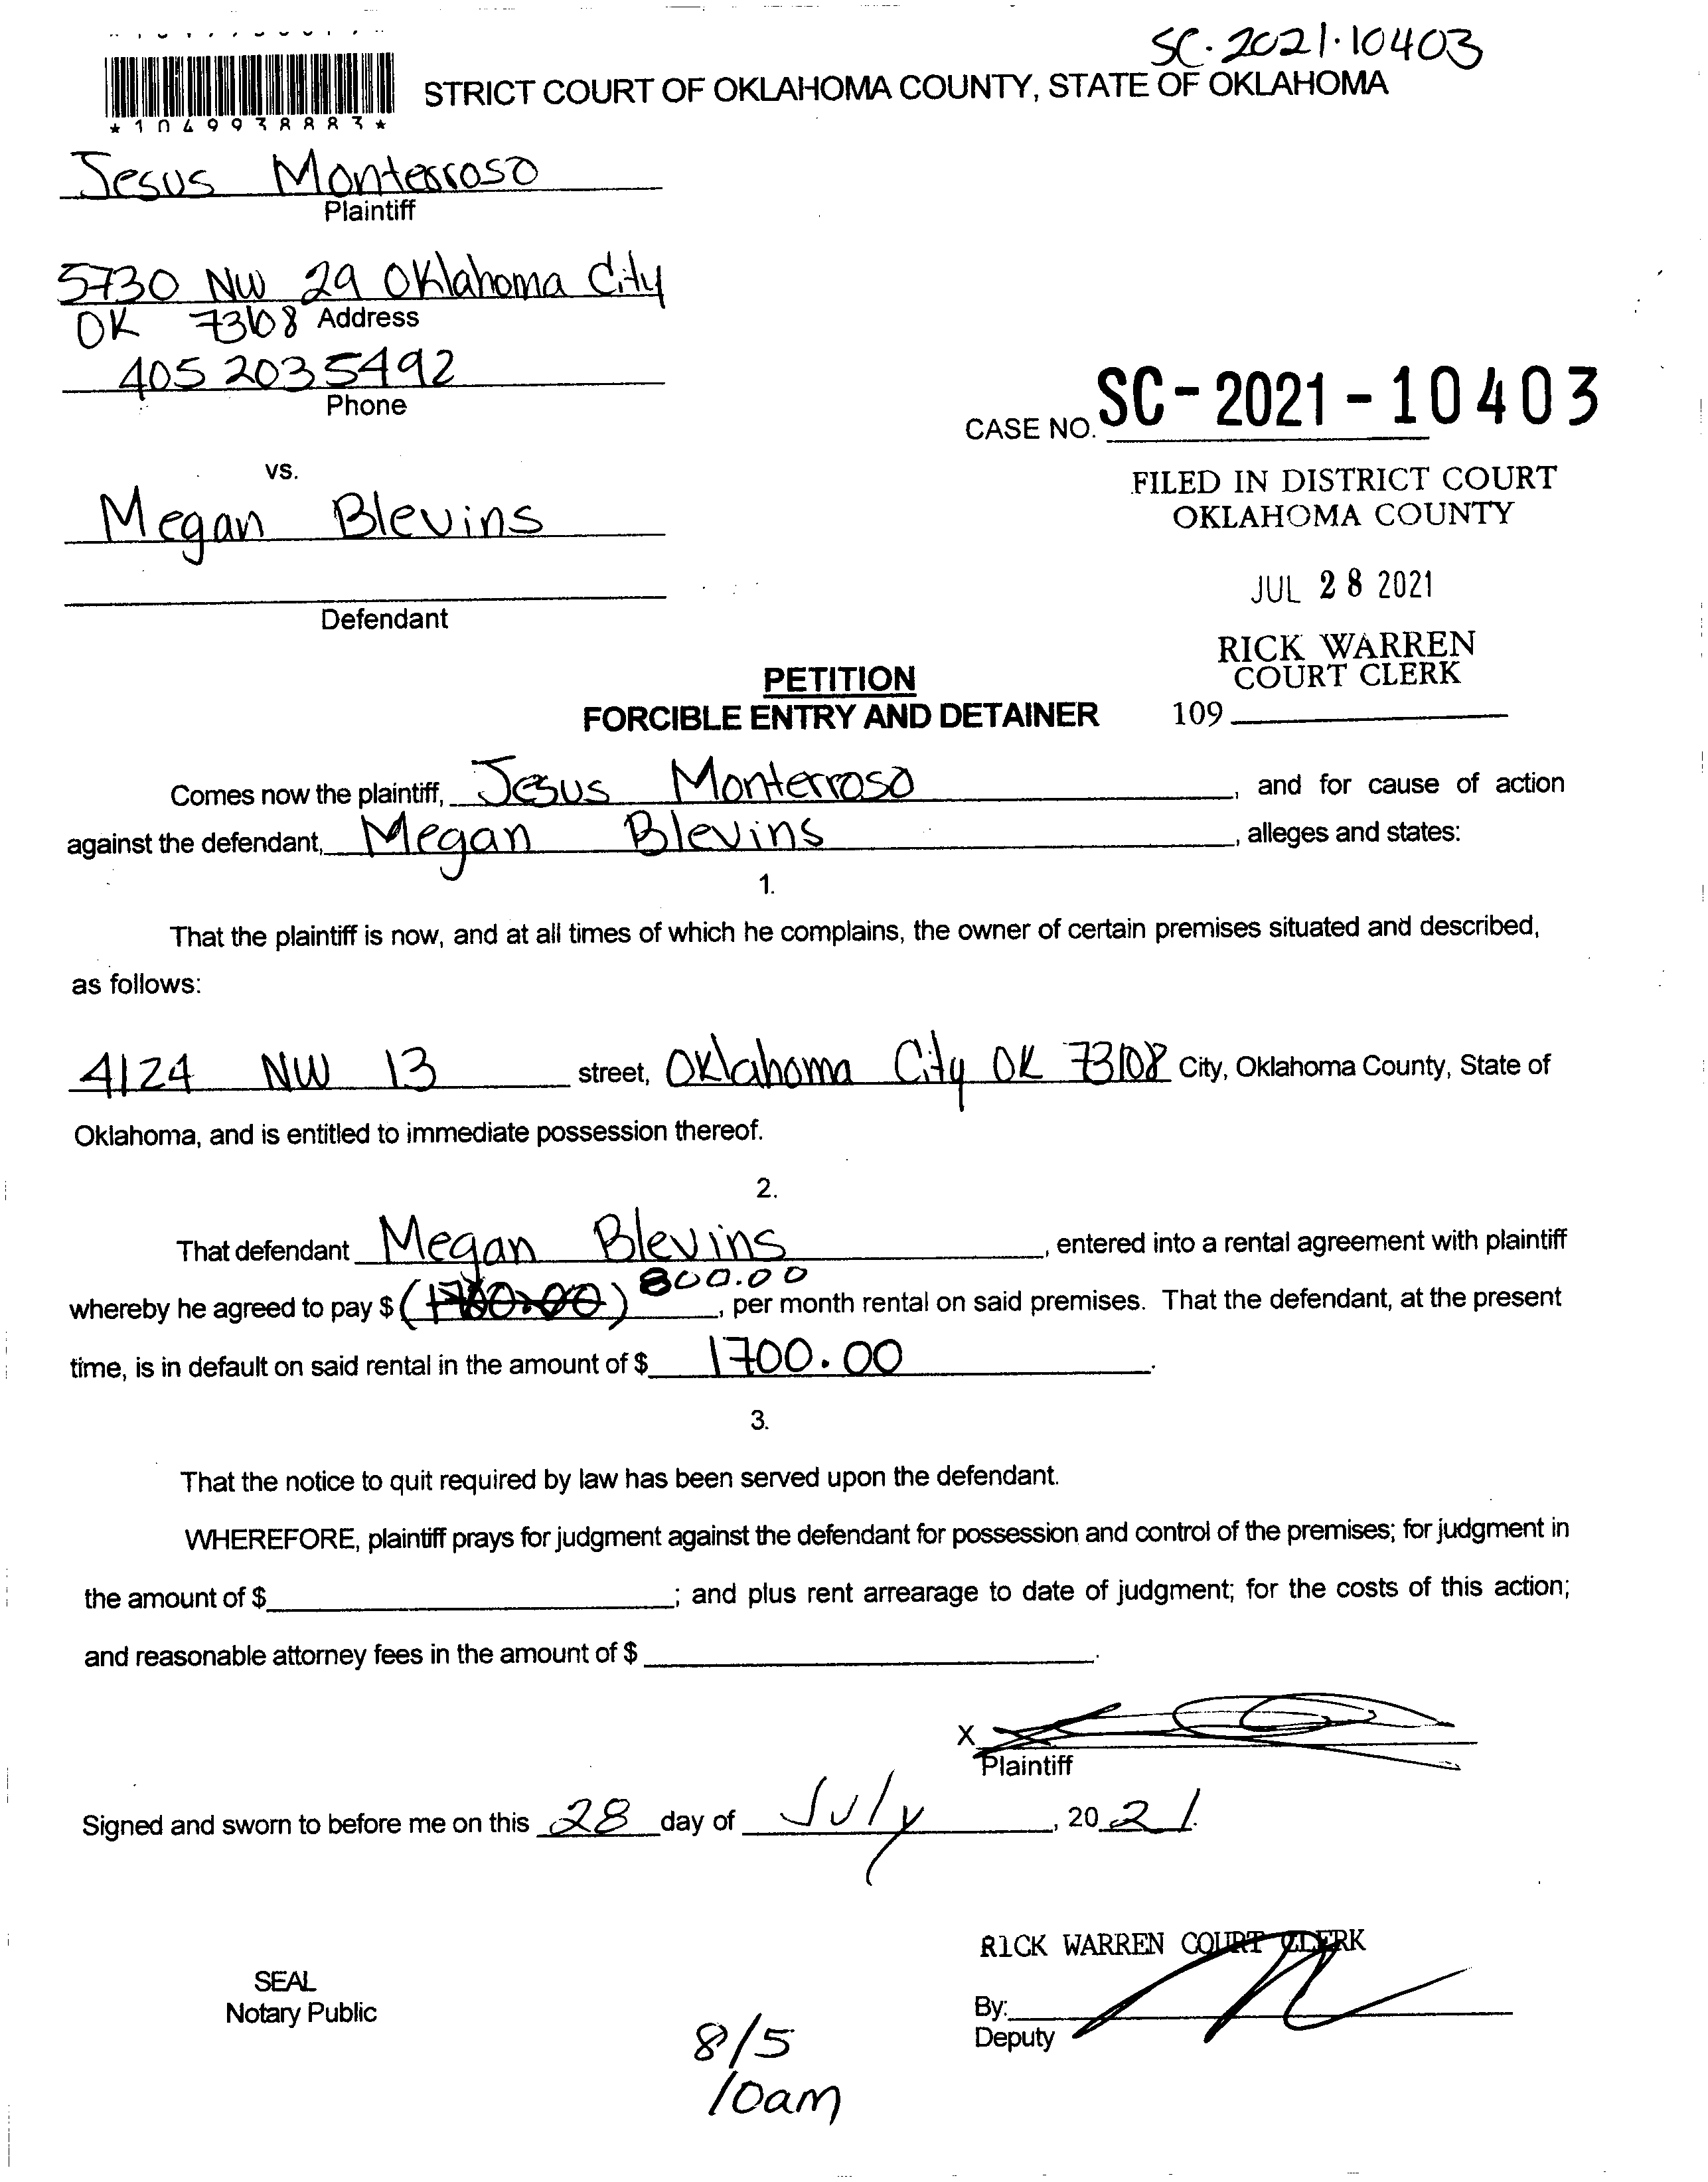 SC-2021-10403
STRICT COURT OF OKLAHOMA COUNTY, STATE OF OKLAHOMA
*1049938883*
Jesus Monterroso
Plaintiff
5730 NW 29 Oklahoma City
OK 73108 Address
405 203 5492
Phone
CASE NO. SC-2021-10403
vs.
FILED IN DISTRICT COURT
OKLAHOMA COUNTY
Megan Blevins
JUL 28 2021
Defendant
RICK WARREN
COURT CLERK
PETITION
FORCIBLE ENTRY AND DETAINER
109
Comes now the plaintiff, Jesus Monterroso, and for cause of action
against the defendant, Megan Blevins, alleges and states:
1.
That the plaintiff is now, and at all times of which he complains, the owner of certain premises situated and described,
as follows:
4124 NW 13 street, Oklahoma City OK 73108 City, Oklahoma County, State of
Oklahoma, and is entitled to immediate possession thereof.
2.
That defendant Megan Blevins, entered into a rental agreement with plaintiff
whereby he agreed to pay $ (1700.00) 800.00, per month rental on said premises. That the defendant, at the present
time, is in default on said rental in the amount of $ 1700.00.
3.
That the notice to quit required by law has been served upon the defendant.
WHEREFORE, plaintiff prays for judgment against the defendant for possession and control of the premises; for judgment in
the amount of $; and plus rent arrearage to date of judgment; for the costs of this action;
and reasonable attorney fees in the amount of $.
X
Plaintiff
Signed and sworn to before me on this 28 day of July, 2021.
RICK WARREN COURT CLERK
SEAL
Notary Public
By:
Deputy
8/5
10am